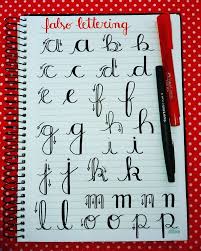 falso lettering
a a b b
c c d d
e e f f
g g h h
i i
j j k k
m m n n
l l o o p p